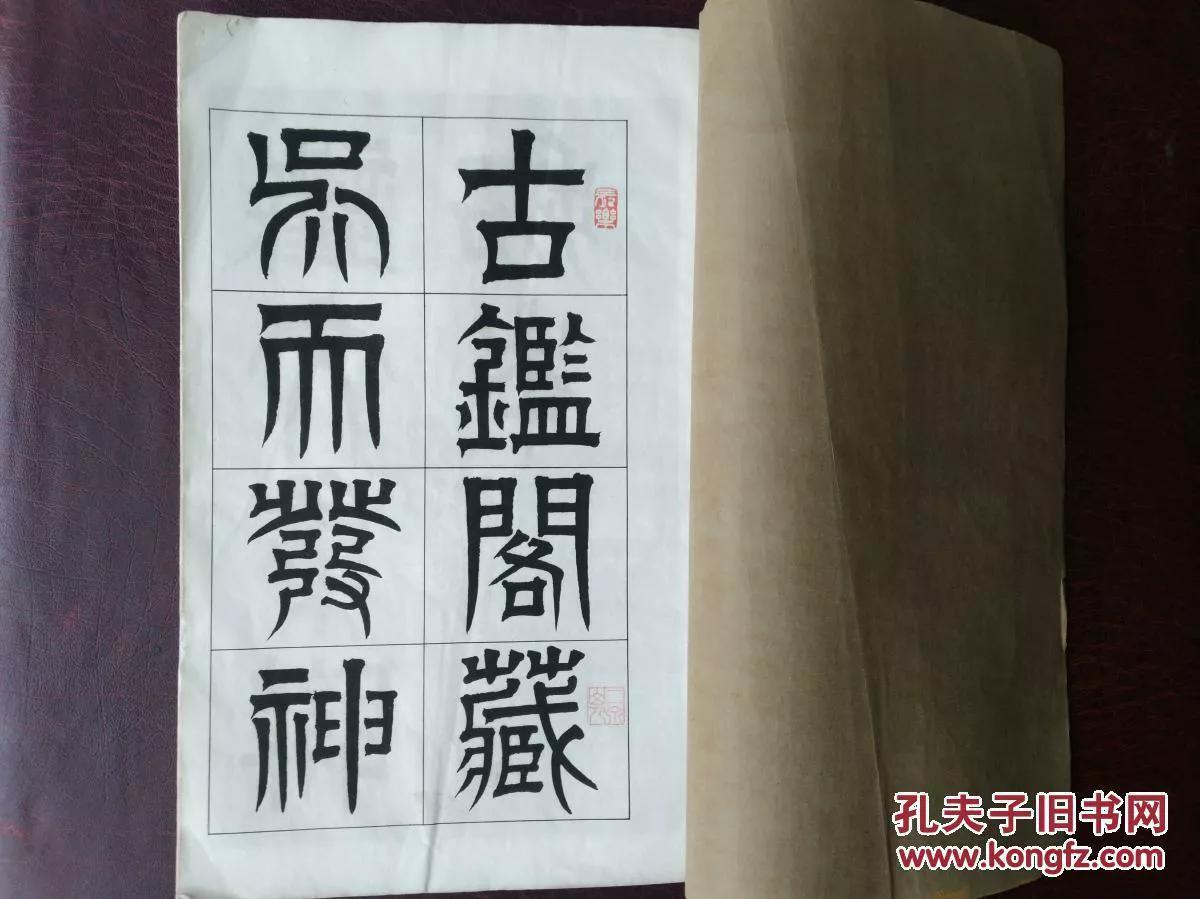 古鑑閣藏
吳天發神
孔夫子旧书网
www.kongfz.com